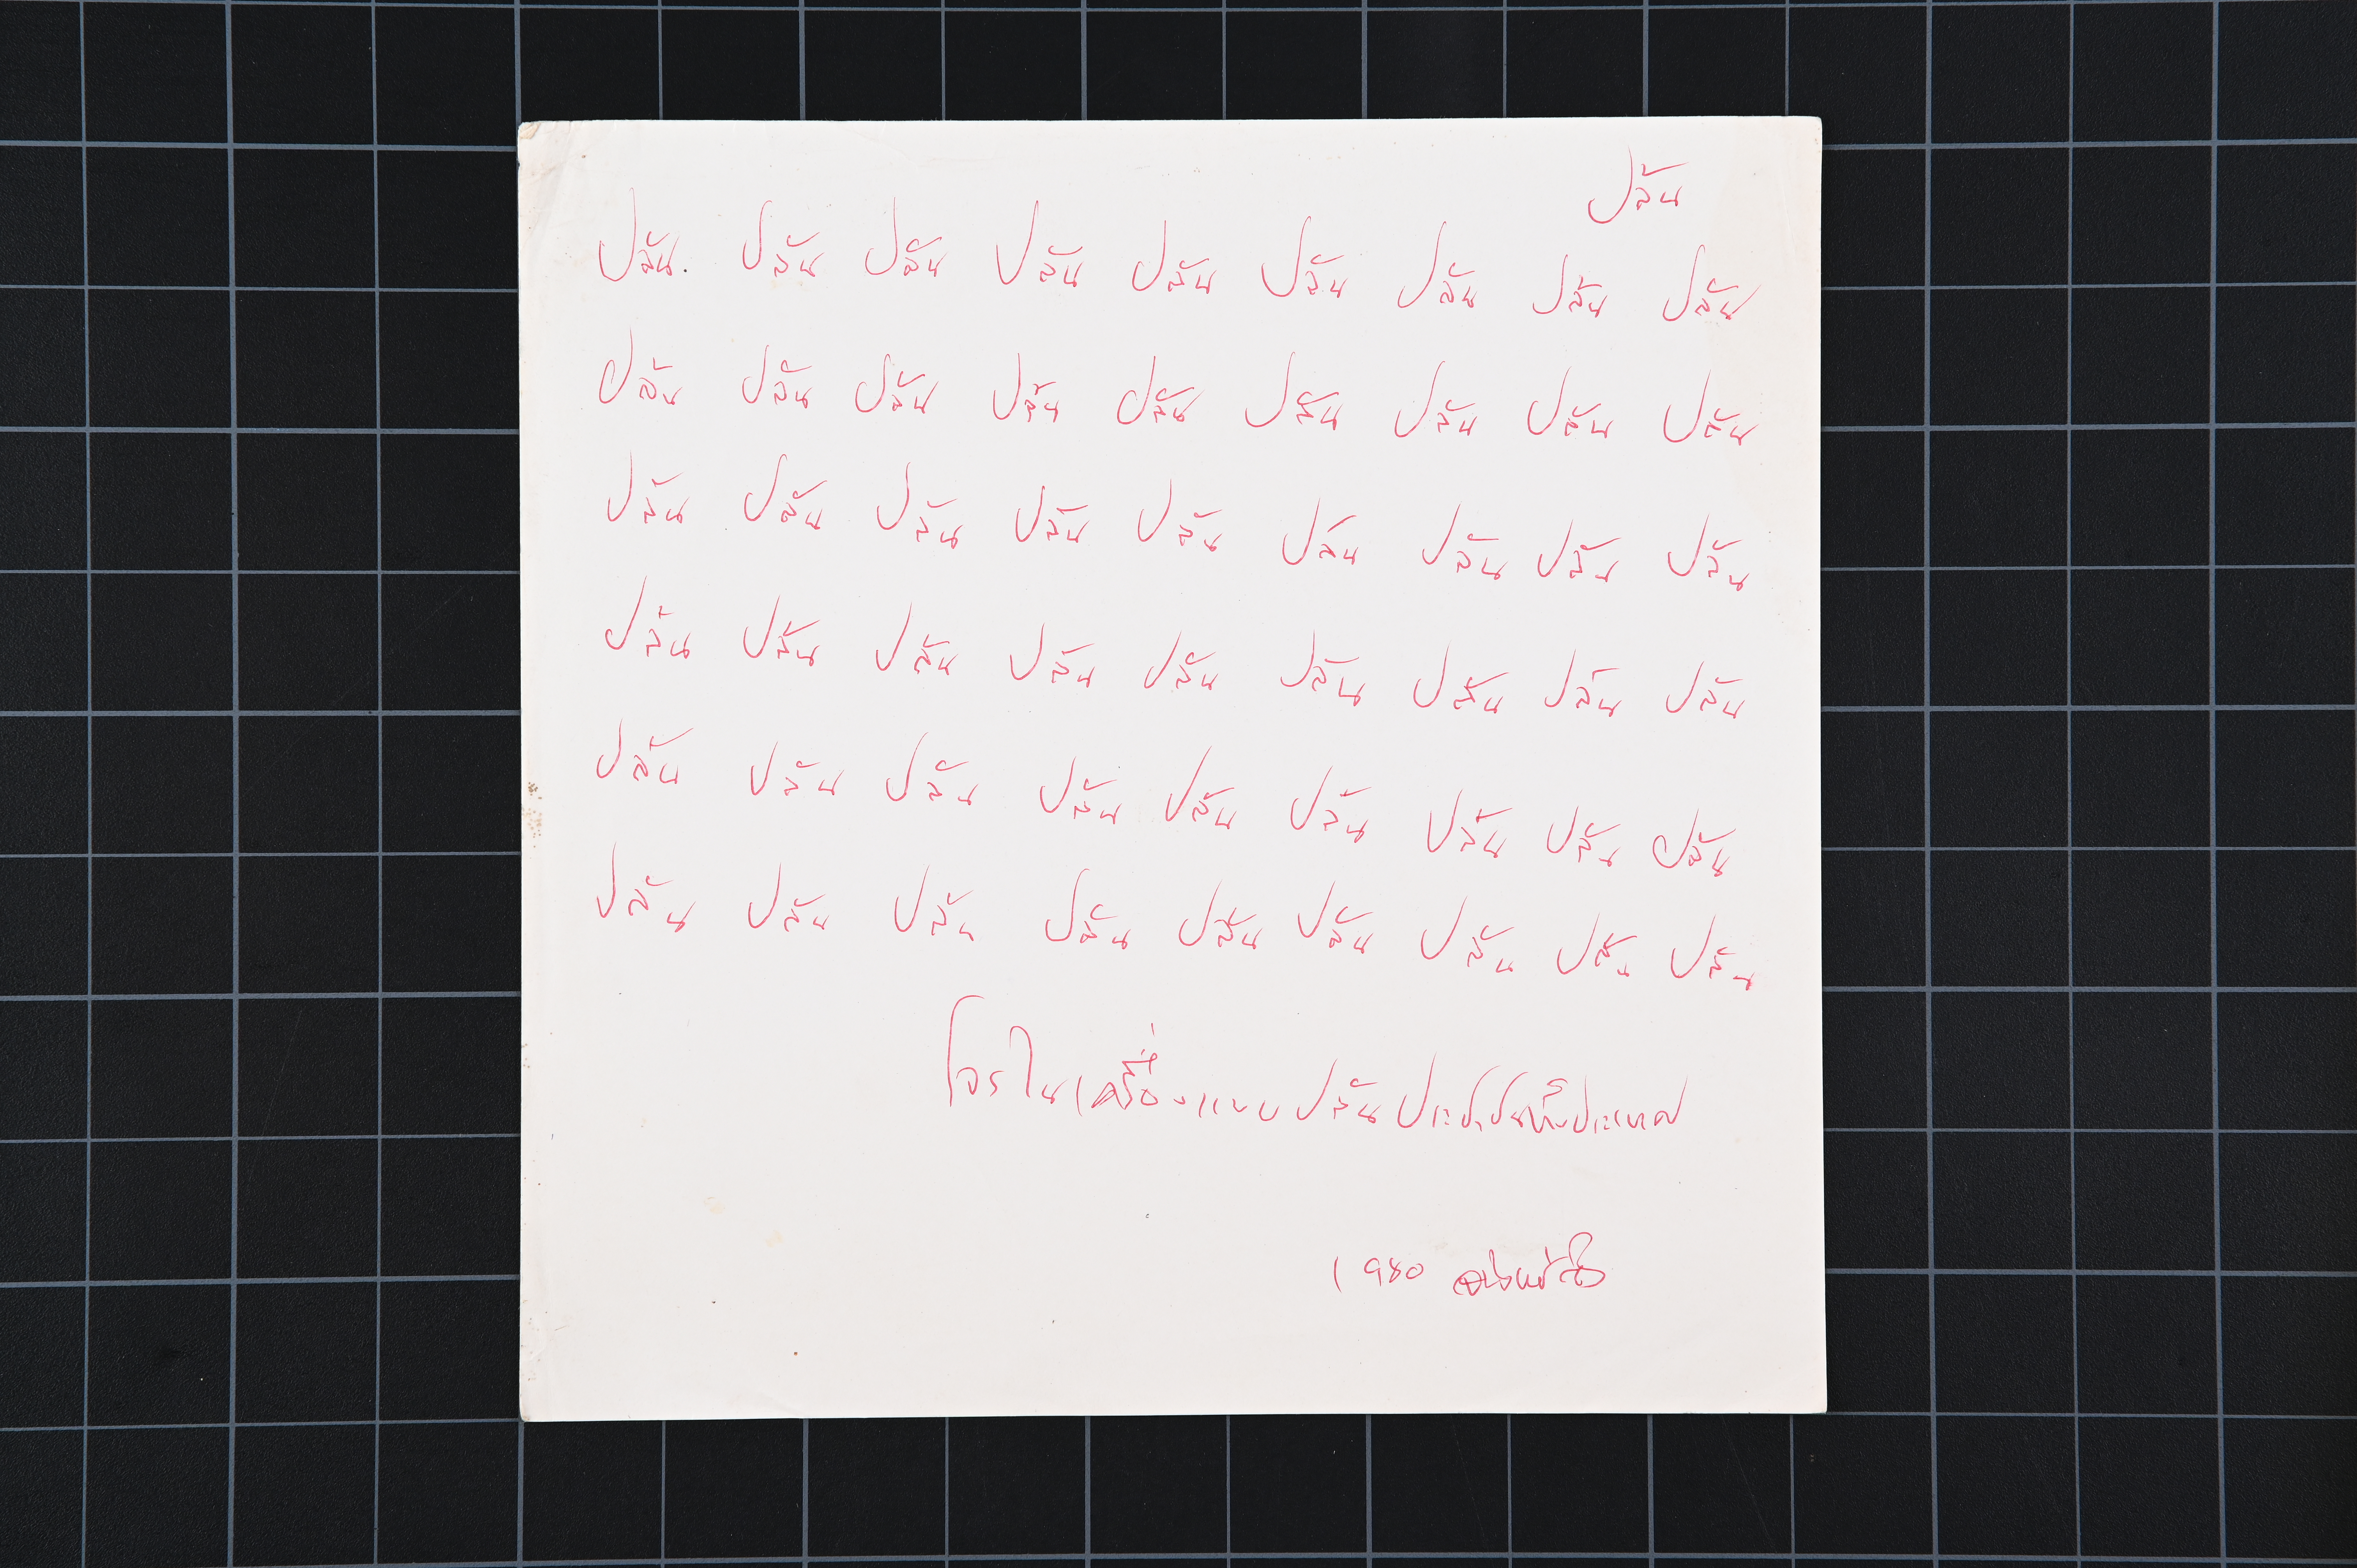 ปล้น
ปล้น ปล้น ปล้น ปล้น ปล้น ปล้น ปล้น ปล้น ปล้น
ปล้น ปล้น ปล้น ปล้น ปล้น ปล้น ปล้น ปล้น ปล้น
ปล้น ปล้น ปล้น ปล้น ปล้น ปล้น ปล้น ปล้น ปล้น
ปล้น ปล้น ปล้น ปล้น ปล้น ปล้น ปล้น ปล้น ปล้น
ปล้น ปล้น ปล้น ปล้น ปล้น ปล้น ปล้น ปล้น ปล้น
ปล้น ปล้น ปล้น ปล้น ปล้น ปล้น ปล้น ปล้น ปล้น
โจรในเครื่องแบบปล้นประชาชนทั้งประเทศ
1980